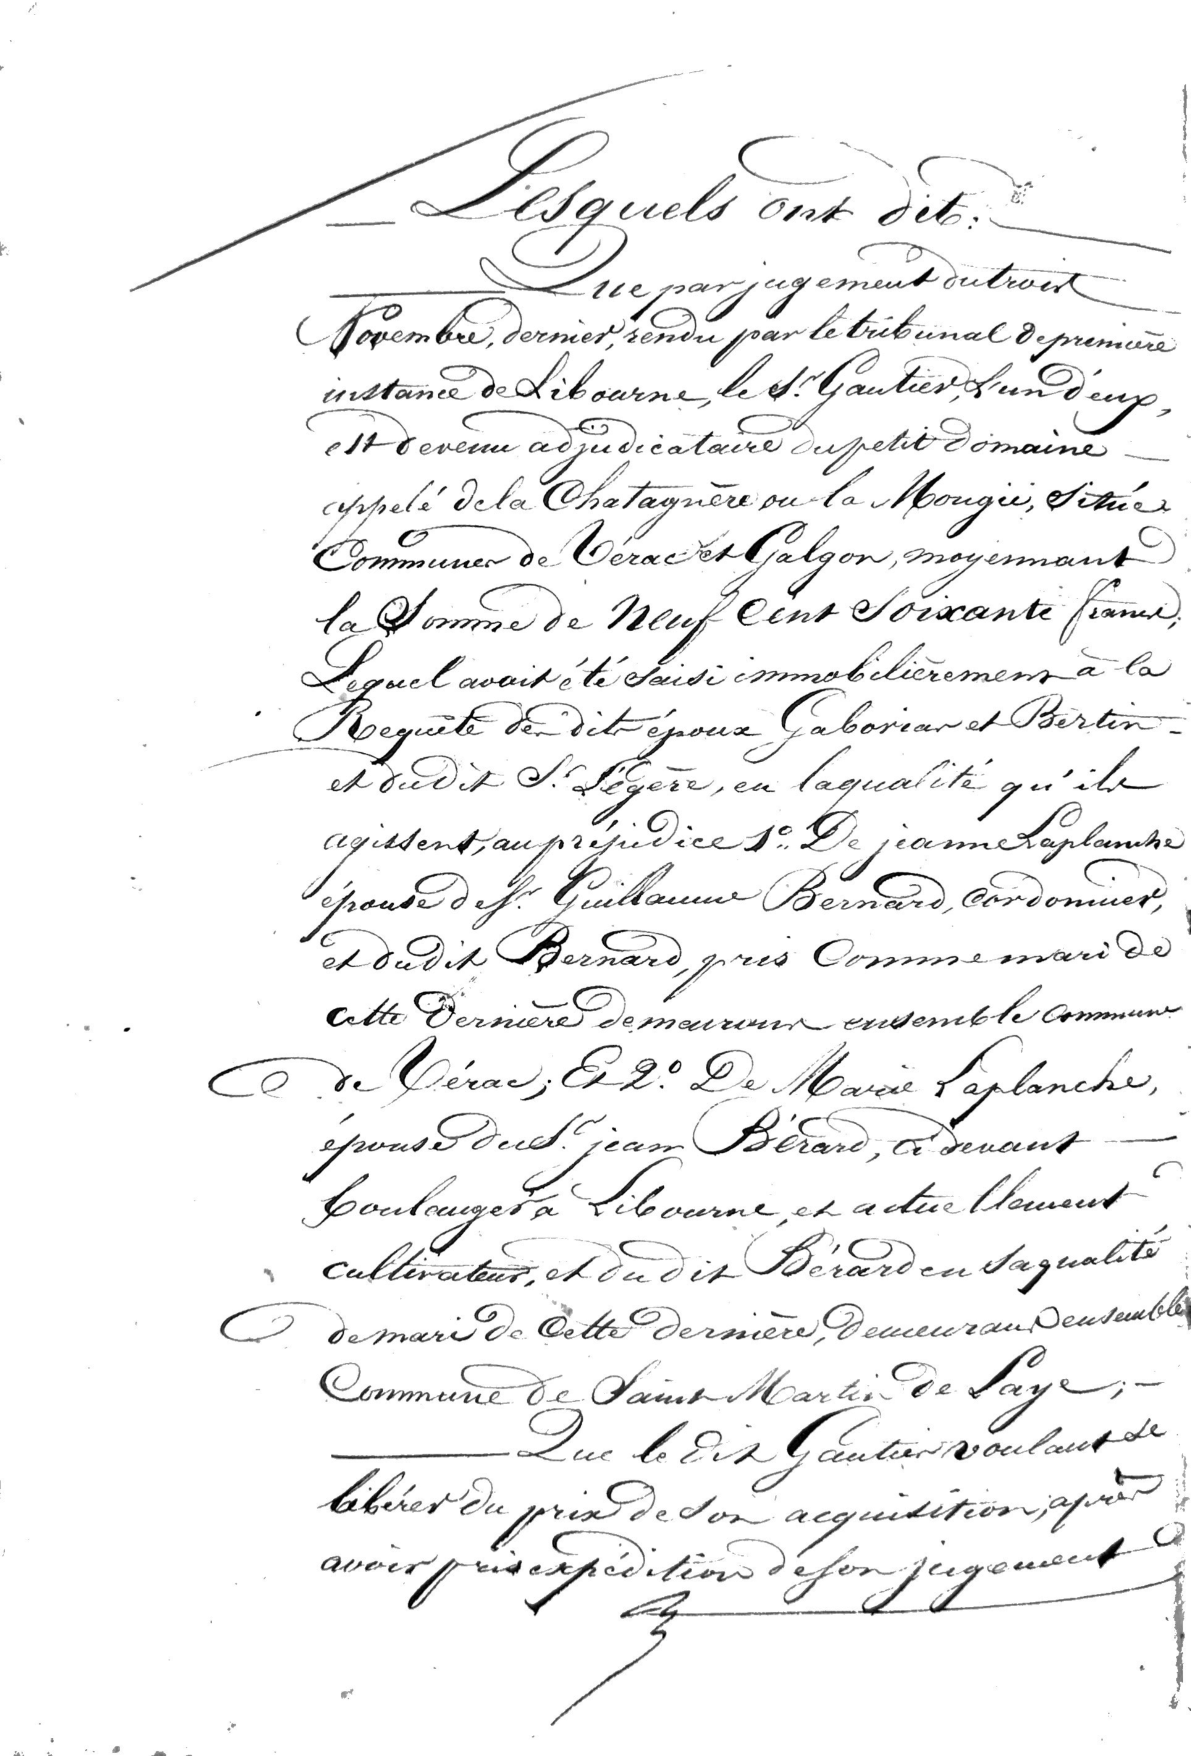 Lesquels ont dit:
Que par jugement du trois
Novembre, dernier, rendu par le tribunal de première
instance de Libourne, le Sr. Gautier, l'un d'eux,
est devenu adjudicataire du petit domaine
appelé de la Chatagnère ou la Mougie, située
Communes de Vérac et Galgon, moyennant
la Somme de Neuf Cent Soixante francs;
Lequel avait été saisi immobilièrement à la
Requête des dits époux Gaboriar et Bertin
et dudit Sr. Légère, en la qualité qu'ils
agissent, au préjudice 1o. De jeanne Laplanche
épouse de Sr. Guillaume Bernard, cordonnier,
et dudit Bernard, pris Comme mari de
cette Dernière demeurans ensemble commune
de Vérac; Et 2o. De Marie Laplanche,
épouse du Sr. jean Bérard, ci devant
boulanger à Libourne, et actuellement
cultivateur, et dudit Bérard en sa qualité
de mari de Cette dernière, demeurans ensemble
Commune de Saint Martin de Laye;
Que le dit Gautier voulant se
libérer du prix de son acquisition, après
avoir pris expédition de son jugement